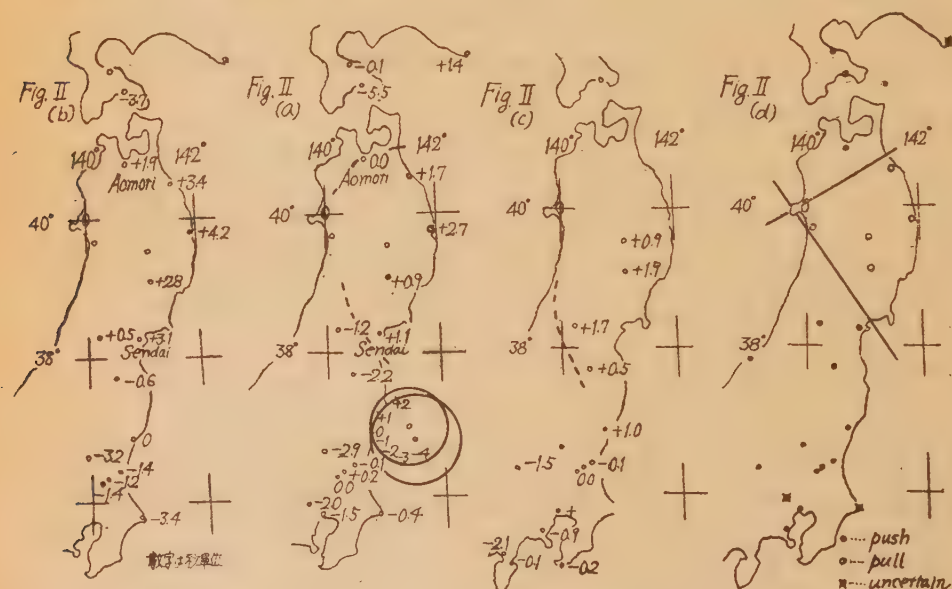 Fig. II
(b)
-3.7
140°
142°
+1.9
Aomori
+3.4
40°
+4.2
+2.8
+0.5
+3.1
Sendai
38°
-0.6
0
-3.2
-1.4
-1.2
-1.4
-3.4
Fig. II
(a)
-0.1
+1.4
-5.5
140°
142°
0.0
Aomori
+1.7
40°
+2.7
+0.9
-1.2
+1.1
Sendai
38°
-2.2
+2
+1
0
-1
-2
-3
-4
-2.9
-0.1
+0.2
0.0
-2.0
-1.5
-0.4
Fig. II
(c)
140°
142°
40°
+0.9
+1.9
+1.7
38°
+0.5
+1.0
-1.5
-0.1
0.0
+
-0.9
-2.1
-0.1
-0.2
Fig. II
(d)
140°
142°
40°
38°
•···· push
o-- pull
×--· uncertain